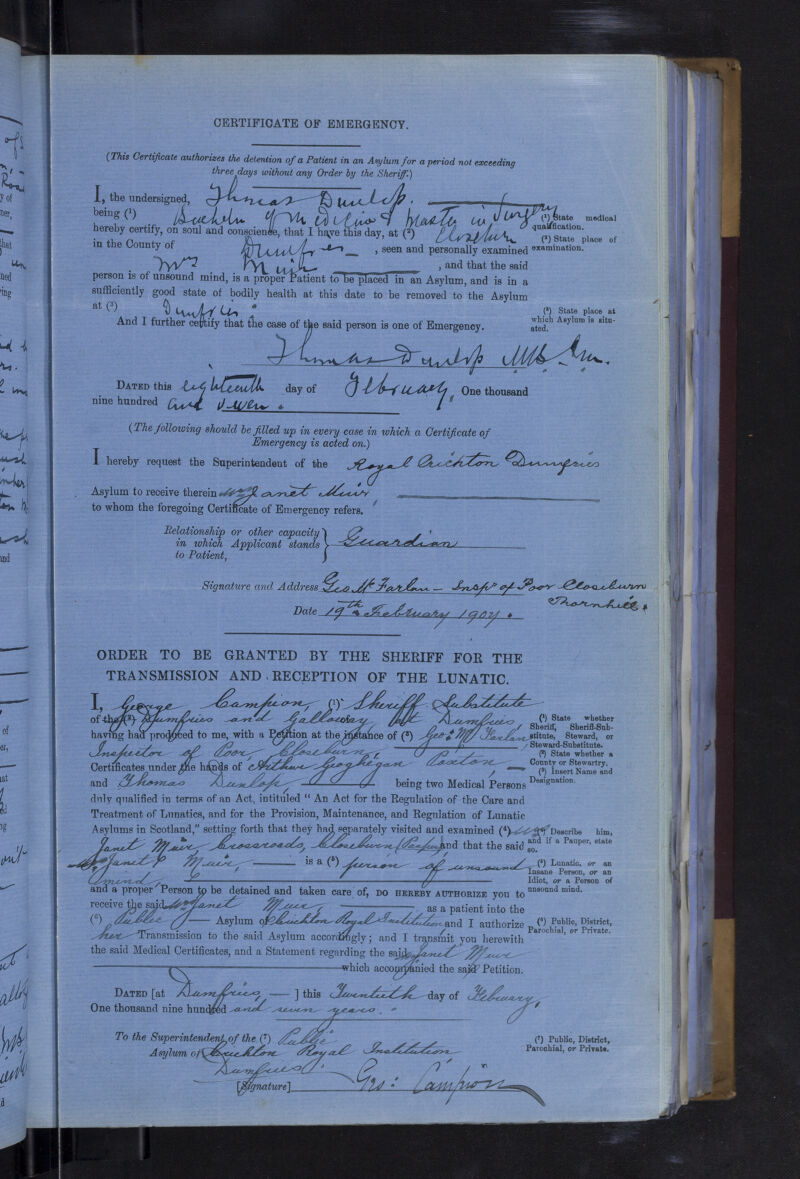 CERTIFICATE OF EMERGENCY.
(This Certificate authorizes the detention of a Patient in an Asylum for a period not exceeding
three days without any Order by the Sheriff.)
I, the undersigned, Thomas Dunlop.
being (¹) Bachelor of Medicine & Master in Surgery
hereby certify, on soul and conscience, that I have this day, at (²) Closeburn
in the County of Dumfries, seen and personally examined
Mrs Muir, and that the said
person is of unsound mind, is a proper Patient to be placed in an Asylum, and is in a
sufficiently good state of bodily health at this date to be removed to the Asylum
at (³) Dumfries.
And I further certify that the case of the said person is one of Emergency.
(¹) State medical
qualification.
(²) State place of
examination.
(³) State place at
which Asylum is situ-
ated.
Thomas Dunlop M.B. C.M.
DATED this eighteenth day of February, One thousand
nine hundred and seven.
(The following should be filled up in every case in which a Certificate of
Emergency is acted on.)
I hereby request the Superintendent of the Royal Crichton Dumfries
Asylum to receive therein Mrs Janet Muir,
to whom the foregoing Certificate of Emergency refers.
Relationship or other capacity
in which Applicant stands
to Patient,
Guardian
Signature and Address Geo McFarlan - Inspr of Poor Closeburn
Thornhill.
Date 19th February 1907.
ORDER TO BE GRANTED BY THE SHERIFF FOR THE
TRANSMISSION AND RECEPTION OF THE LUNATIC.
I, George Campion, (¹) Sheriff Substitute
of the (²) Dumfries and Galloway at Dumfries,
having had produced to me, with a Petition at the instance of (³) Geo: McFarlan,
Inspector of Poor, Closeburn,
Certificates under the hands of Arthur Geoghegan Paxton,
and Thomas Dunlop, being two Medical Persons
duly qualified in terms of an Act, intituled " An Act for the Regulation of the Care and
Treatment of Lunatics, and for the Provision, Maintenance, and Regulation of Lunatic
Asylums in Scotland," setting forth that they had separately visited and examined (⁴) Mrs
Janet Muir, Crossroads, Closeburn (Pauper) and that the said
Mrs Janet Muir, is a (⁵) person of unsound
mind
and a proper Person to be detained and taken care of, DO HEREBY AUTHORIZE you to
receive the said Mrs Janet Muir as a patient into the
(⁶) Public Asylum of Crichton Royal Institution, and I authorize
her Transmission to the said Asylum accordingly; and I transmit you herewith
the said Medical Certificates, and a Statement regarding the said Mrs Janet Muir
which accompanied the said Petition.
(¹) State whether
Sheriff, Sheriff-Sub-
stitute, Steward, or
Steward-Substitute.
(²) State whether a
County or Stewartry.
(³) Insert Name and
Designation.
(⁴) Describe him,
and if a Pauper, state
so.
(⁵) Lunatic, or an
Insane Person, or an
Idiot, or a Person of
unsound mind.
(⁶) Public, District,
Parochial, or Private.
DATED [at Dumfries, ] this Twentieth day of February,
One thousand nine hundred and seven years.
To the Superintendent of the (⁷) Public
Asylum of Crichton Royal Institution
Dumfries.
(⁷) Public, District,
Parochial, or Private.
[Signature] Geo: Campion